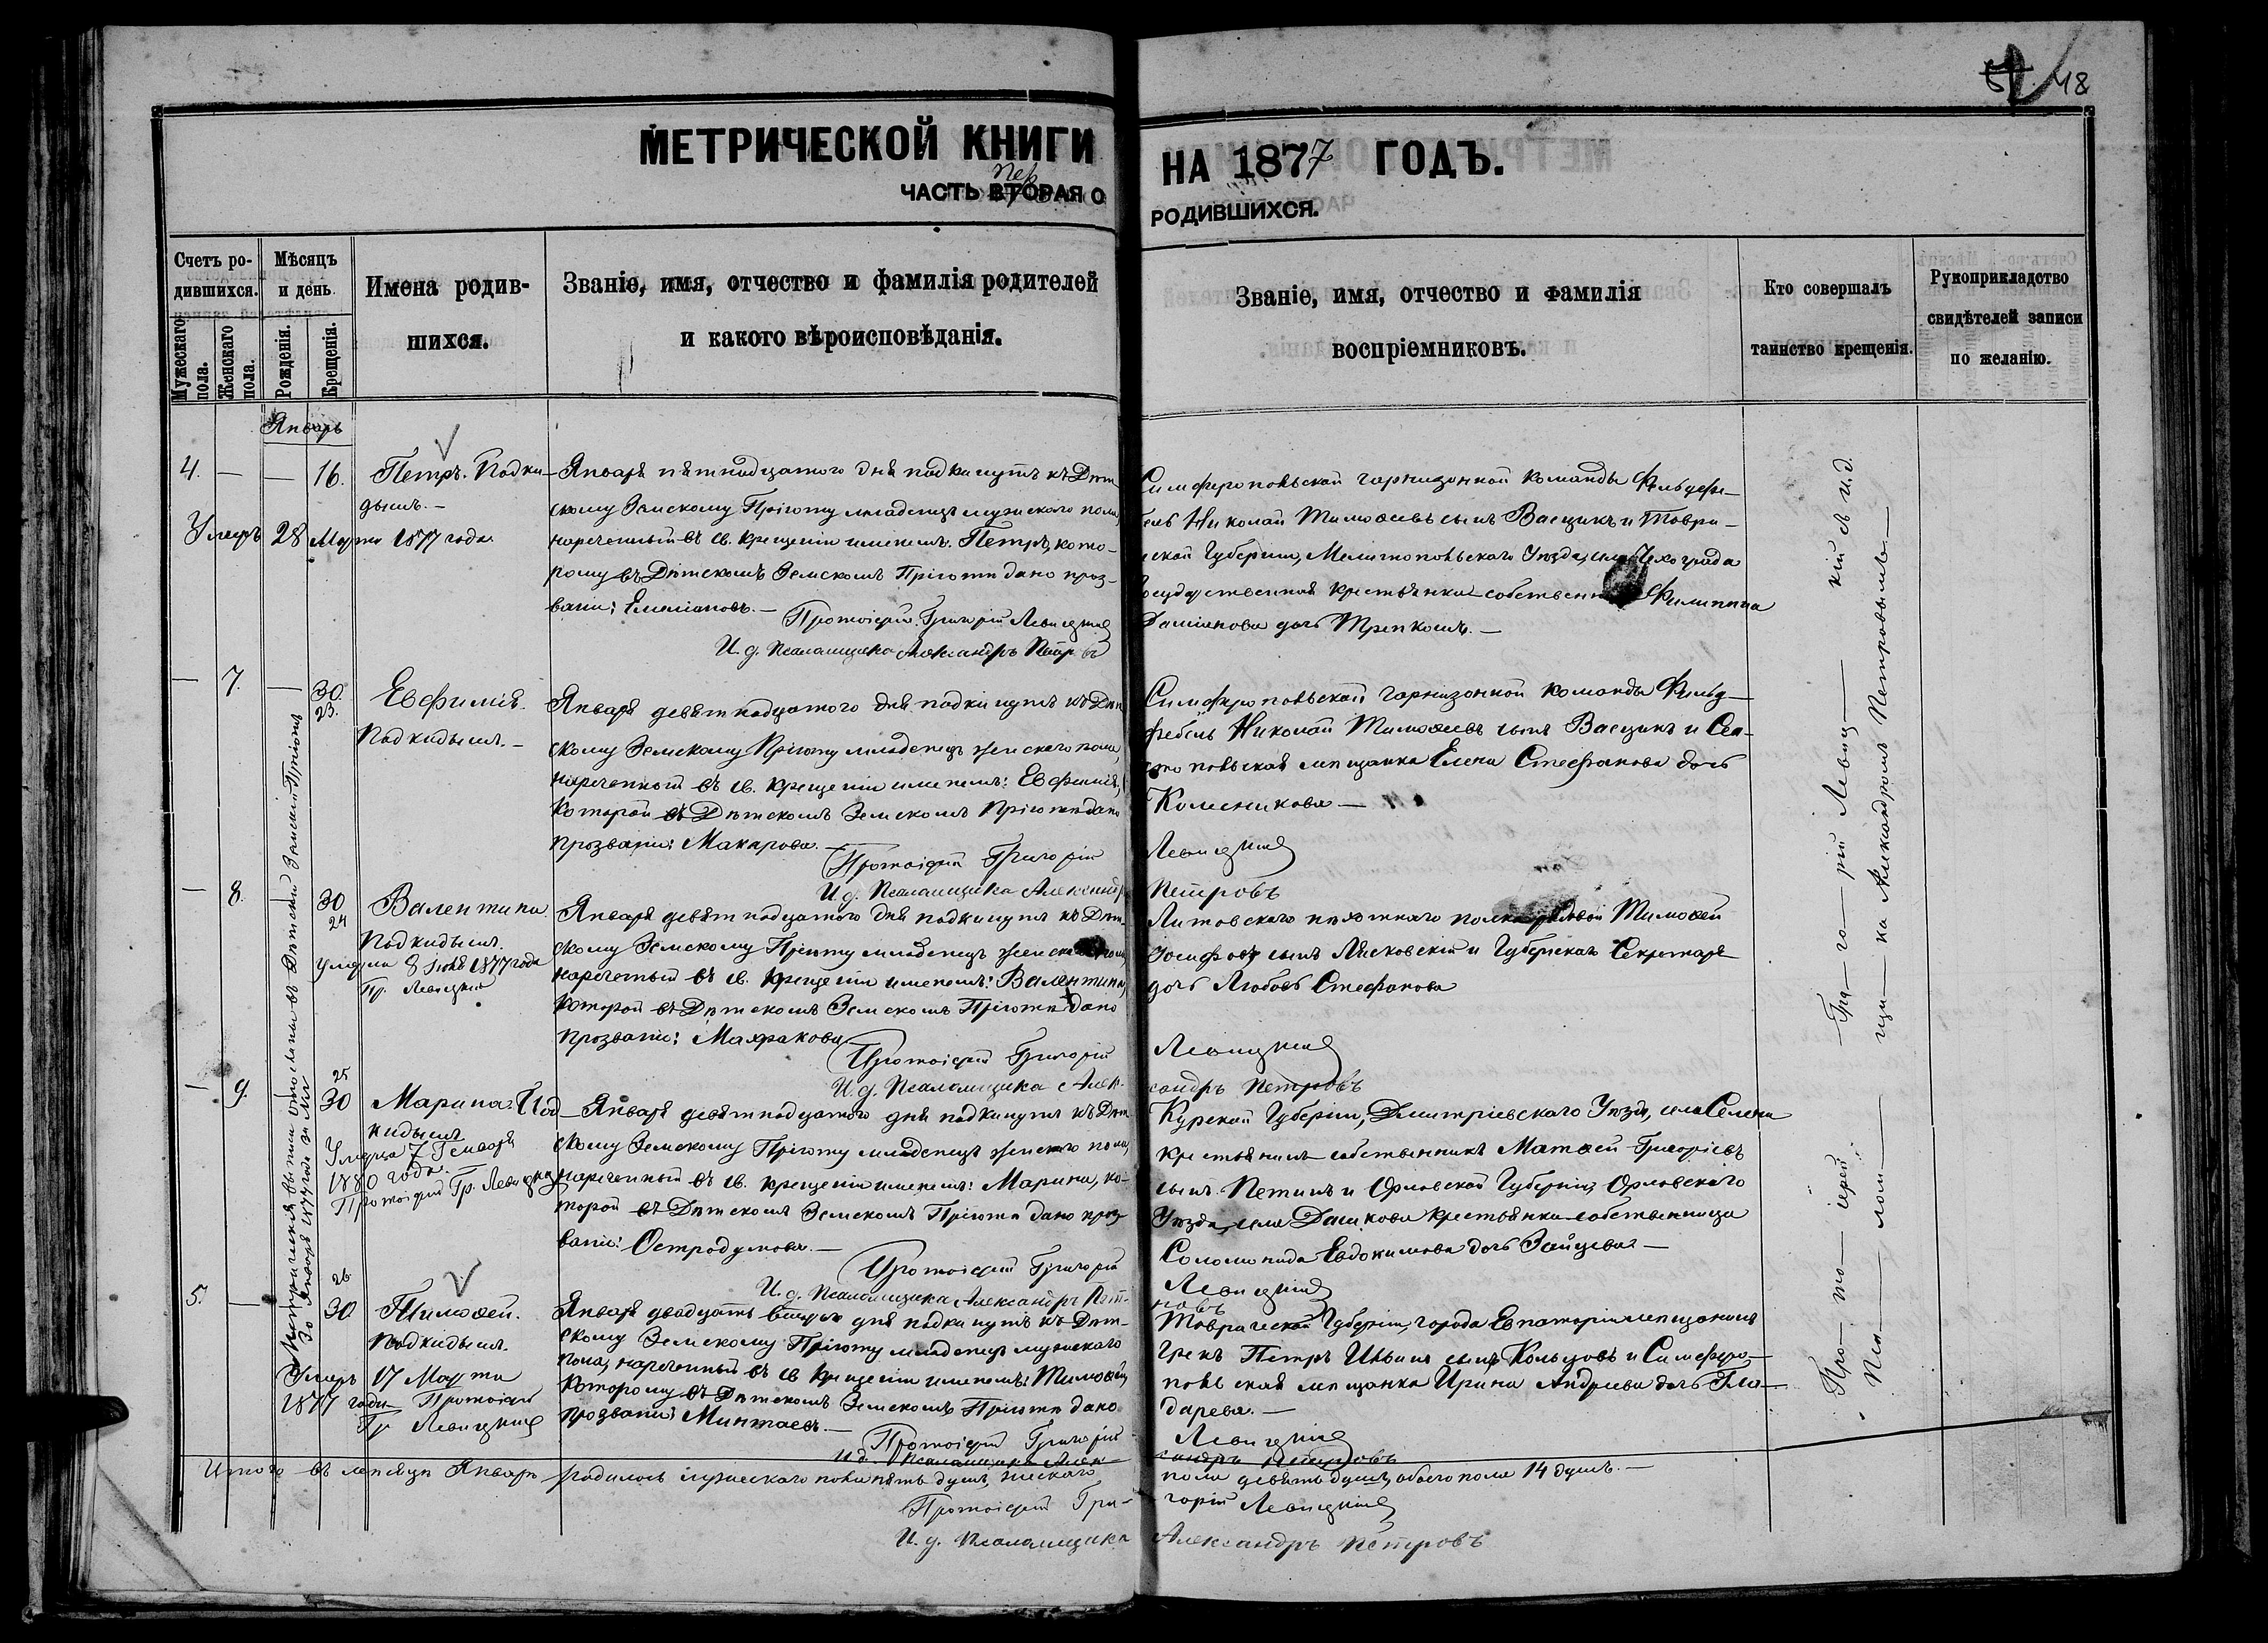 48
МЕТРИЧЕСКОЙ КНИГИ НА 1877 ГОДЪ.
ЧАСТЬ ВТОРАЯ О РОДИВШИХСЯ.
пер
Счетъ родившихся.
Мужескаго пола.
Женскаго пола.
Мѣсяцъ и день.
Рожденія.
Крещенія.
Имена родившихся.
Званіе, имя, отчество и фамилія родителей
и какого вѣроисповѣданія.
Званіе, имя, отчество и фамилія
воспріемниковъ.
Кто совершалъ
таинство крещенія.
Рукоприкладство
свидѣтелей записи
по желанію.
Январь
4. — — 16.
Петръ. Подки-
дышъ. —
Умеръ 28 Марта 1877 года.
Января пятнадцатого дня подкинутъ къ Дѣт-
скому Земскому Пріюту младенецъ мужеского пола,
нареченный въ св. крещеніи именемъ: Петръ, кото-
рому въ Дѣтскомъ Земскомъ Пріютѣ дано проз-
ваніе: Емеліановъ. —
Протоіерей Григорій Левицкій
И. д. Псаломщика Александръ Петровъ
Симферопольской гарнизонной команды Фельдфе-
бель Николай Тимоѳеевъ сынъ Васцикъ и Таври-
ческой Губерніи, Мелитопольскаго Уѣзда, села Чехограда
Государственная крестьянка-собственница Филиппина
Даміанова дочь —
— 7. — 30.
23.
Евфимія.
Подкидышъ. —
Января девятнадцатого дня подкинутъ къ Дѣт-
скому Земскому Пріюту младенецъ женского пола,
нареченный въ св. крещеніи именемъ: Евфимія,
которой въ Дѣтскомъ Земскомъ Пріютѣ дано
прозваніе: Макарова. —
Протоіерей Григорій Левицкій
И. д. Псаломщика Александръ Петровъ
Симферопольской гарнизонной команды Фельд-
фебель Николай Тимоѳеевъ сынъ Васцикъ и Сева-
стопольская мѣщанка Елена Стефанова дочь
Колесникова —
— 8. 30
24
Валентина
Подкидышъ.
умерла 8 Іюня 1877 года
Пр. Левицкій
Января девятнадцатого дня подкинутъ къ Дѣт-
скому Земскому Пріюту младенецъ женского пола,
нареченный въ св. крещеніи именемъ: Валентина,
которой въ Дѣтскомъ Земскомъ Пріютѣ дано
прозваніе:
Протоіерей Григорій Левицкій
И. д. Псаломщика Александръ Петровъ
Литовского пѣхотнаго полка рядовой Тимоѳей
Іосифовъ сынъ Лясковскій и Губернскаго Секретаря
дочь Любовь Стефанова
— 9. 25
30
Марина. Под-
кидышъ
Умерла 7 Генваря
1880 года.
Протоіерей Гр. Левицкій
Января девятнадцатого дня подкинутъ къ Дѣт-
скому Земскому Пріюту младенецъ женского пола,
нареченный въ св. крещеніи именемъ: Марина, ко-
торой въ Дѣтскомъ Земскомъ Пріютѣ дано проз-
ваніе: Остродумова. —
Протоіерей Григорій Левицкій
И. д. Псаломщика Александръ Петровъ
Курской Губерніи, Дмитріевскаго Уѣзда, села
крестьянинъ собственникъ Матѳей Григоріевъ
сынъ Петинъ и Орловской Губерніи, Орловскаго
Уѣзда, села Дашкова крестьянка-собственница
Соломонида Евдокимова дочь Зайцева —
5. — 26
30.
Тимоѳей.
Подкидышъ.
Умеръ 17 Марта
1877 года Протоіерей
Гр. Левицкій
Января двадцать дня подкинутъ къ Дѣт-
скому Земскому Пріюту младенецъ мужескаго
пола, нареченный въ св крещеніи именемъ: Тимоѳей,
которому въ Дѣтскомъ Земскомъ Пріютѣ дано
прозваніе: Минтаевъ. —
Протоіерей Григорій Левицкій
И. д. Псаломщика Александръ Петровъ
Таврической Губерніи, города Евпаторіи мѣщанинъ
Грекъ Петръ Ильинъ сынъ Кольцовъ и Симферо-
польская мѣщанка Ирина Андреева дочь Гла-
дарева. —
Метрическія выписи отосланы въ Дѣтскій Земскій Пріютъ
30 Января 1877 года за №
Протоіерей Григорій Левицкій съ и. д.
Псаломщика Александромъ Петровымъ —
Итого въ мѣсяцѣ Январѣ родилось мужескаго пола пять душъ, женскаго
пола девять душъ, обоего пола 14 душъ. —
Протоіерей Григорій Левицкій
И. д. Псаломщика Александръ Петровъ